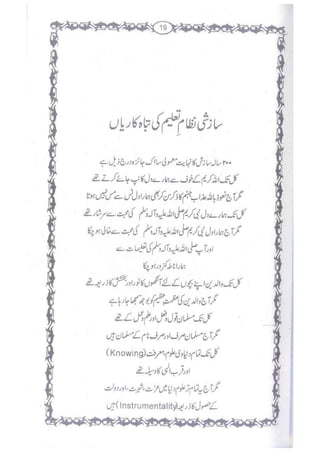 19
سازشی نظامِ تعلیم کی تباہ کاریاں
۲۰۰ سالہ سازش کا نہایت معمولی سا اک جائزہ درج ذیل ہے
کل تک اللہ کریم کے خوف سے ہمارے دل کانپ جائے کرتے تھے
مگر آج نعوذ باللہ عذاب جہنم کا ذکر سن کر بھی ہمارا دل ٹس سے مس نہیں ہوتا
کل تک ہمارے دل نبی کریم صلی اللہ علیہ و آلہ وسلم کی محبت سے سرشار تھے
مگر آج ہمارا دل نبی کریم صلی اللہ علیہ و آلہ وسلم کی محبت سے خالی ہو چکا
اور آپ صلی اللہ علیہ و آلہ وسلم کی تعلیمات سے
ہمارا ناطہ کمزور ہو چکا
کل تک والدین اپنے بچوں کے لئے آنکھوں کا نور اور بخشش کا ذریعہ تھے
مگر آج والدین کی عظمتِ عظیم کو بوجھ سمجھا جا رہا ہے
کل تک مسلمان قول و فعل اور علم و عمل کے تھے
مگر آج مسلمان صرف اور صرف نام کے مسلمان ہیں
کل تک تمام دنیاوی علوم، معرفت (Knowing)
اور قرب الٰہی کا وسیلہ تھے
مگر آج یہ تمام تر علوم دنیا میں عزت، شہرت، اور دولت
کے حصول کا ذریعہ (Instrumentality) ہیں